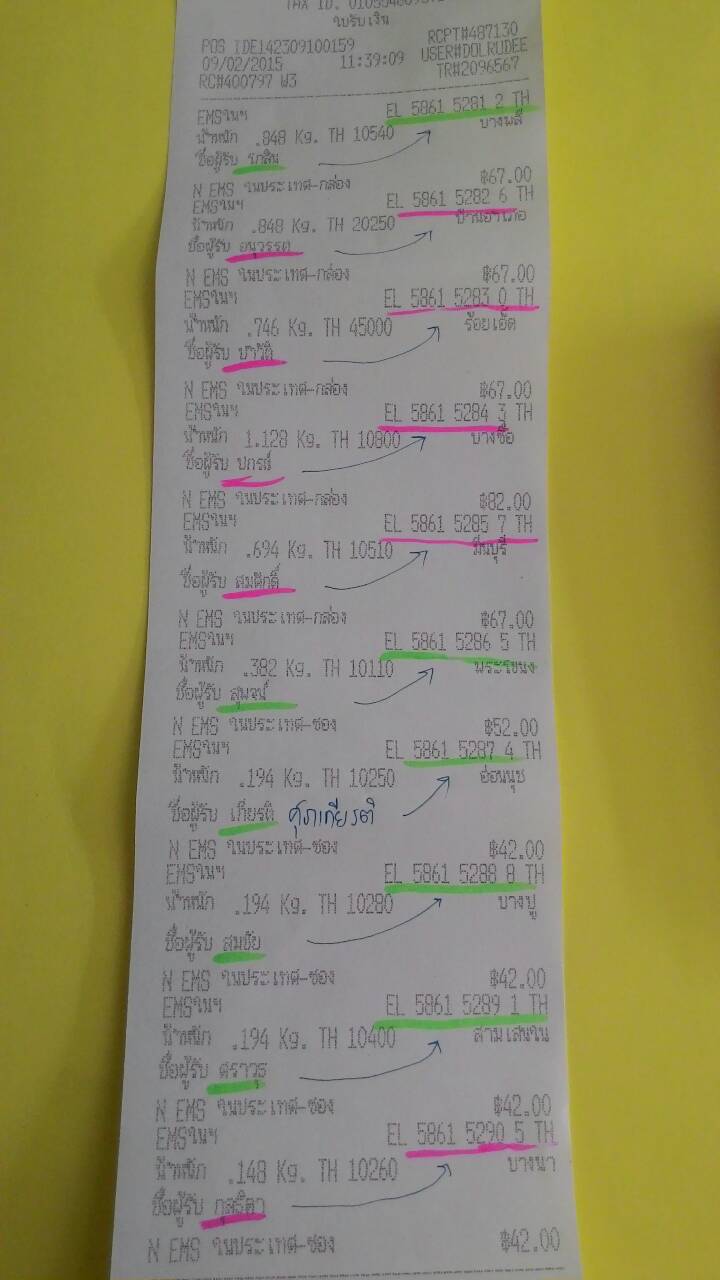 TAX ID.
ใบรับเงิน
RCPT#487130
POS IDE142309100159 USER#DOLRUDEE
09/02/2015 11:39:09 TR#2096567
RC#400797 W3
EMSในฯ EL 5861 5281 2 TH
น้ำหนัก .848 Kg. TH 10540 บางพลี
ชื่อผู้รับ โกสิน
N EMS ในประเทศ-กล่อง ฿67.00
EMSในฯ EL 5861 5282 6 TH
น้ำหนัก .848 Kg. TH 20250 บ้านอำเภอ
ชื่อผู้รับ อนุวรรต
N EMS ในประเทศ-กล่อง ฿67.00
EMSในฯ EL 5861 5283 0 TH
น้ำหนัก .746 Kg. TH 45000 ร้อยเอ็ด
ชื่อผู้รับ
N EMS ในประเทศ-กล่อง ฿67.00
EMSในฯ EL 5861 5284 3 TH
น้ำหนัก 1.128 Kg. TH 10800 บางซื่อ
ชื่อผู้รับ ปกรณ์
N EMS ในประเทศ-กล่อง ฿82.00
EMSในฯ EL 5861 5285 7 TH
น้ำหนัก .694 Kg. TH 10510 มีนบุรี
ชื่อผู้รับ สมศักดิ์
N EMS ในประเทศ-กล่อง ฿67.00
EMSในฯ EL 5861 5286 5 TH
น้ำหนัก .382 Kg. TH 10110 พระโขนง
ชื่อผู้รับ สุมจน์
N EMS ในประเทศ-ซอง ฿52.00
EMSในฯ EL 5861 5287 4 TH
น้ำหนัก .194 Kg. TH 10250 อ่อนนุช
ชื่อผู้รับ เกียรติ ศุภเกียรติ
N EMS ในประเทศ-ซอง ฿42.00
EMSในฯ EL 5861 5288 8 TH
น้ำหนัก .194 Kg. TH 10280 บางปู
ชื่อผู้รับ สมชัย
N EMS ในประเทศ-ซอง ฿42.00
EMSในฯ EL 5861 5289 1 TH
น้ำหนัก .194 Kg. TH 10400 สามเสนใน
ชื่อผู้รับ ศราวุธ
N EMS ในประเทศ-ซอง ฿42.00
EMSในฯ EL 5861 5290 5 TH
น้ำหนัก .148 Kg. TH 10260 บางนา
ชื่อผู้รับ กุลธิดา
N EMS ในประเทศ-ซอง ฿42.00